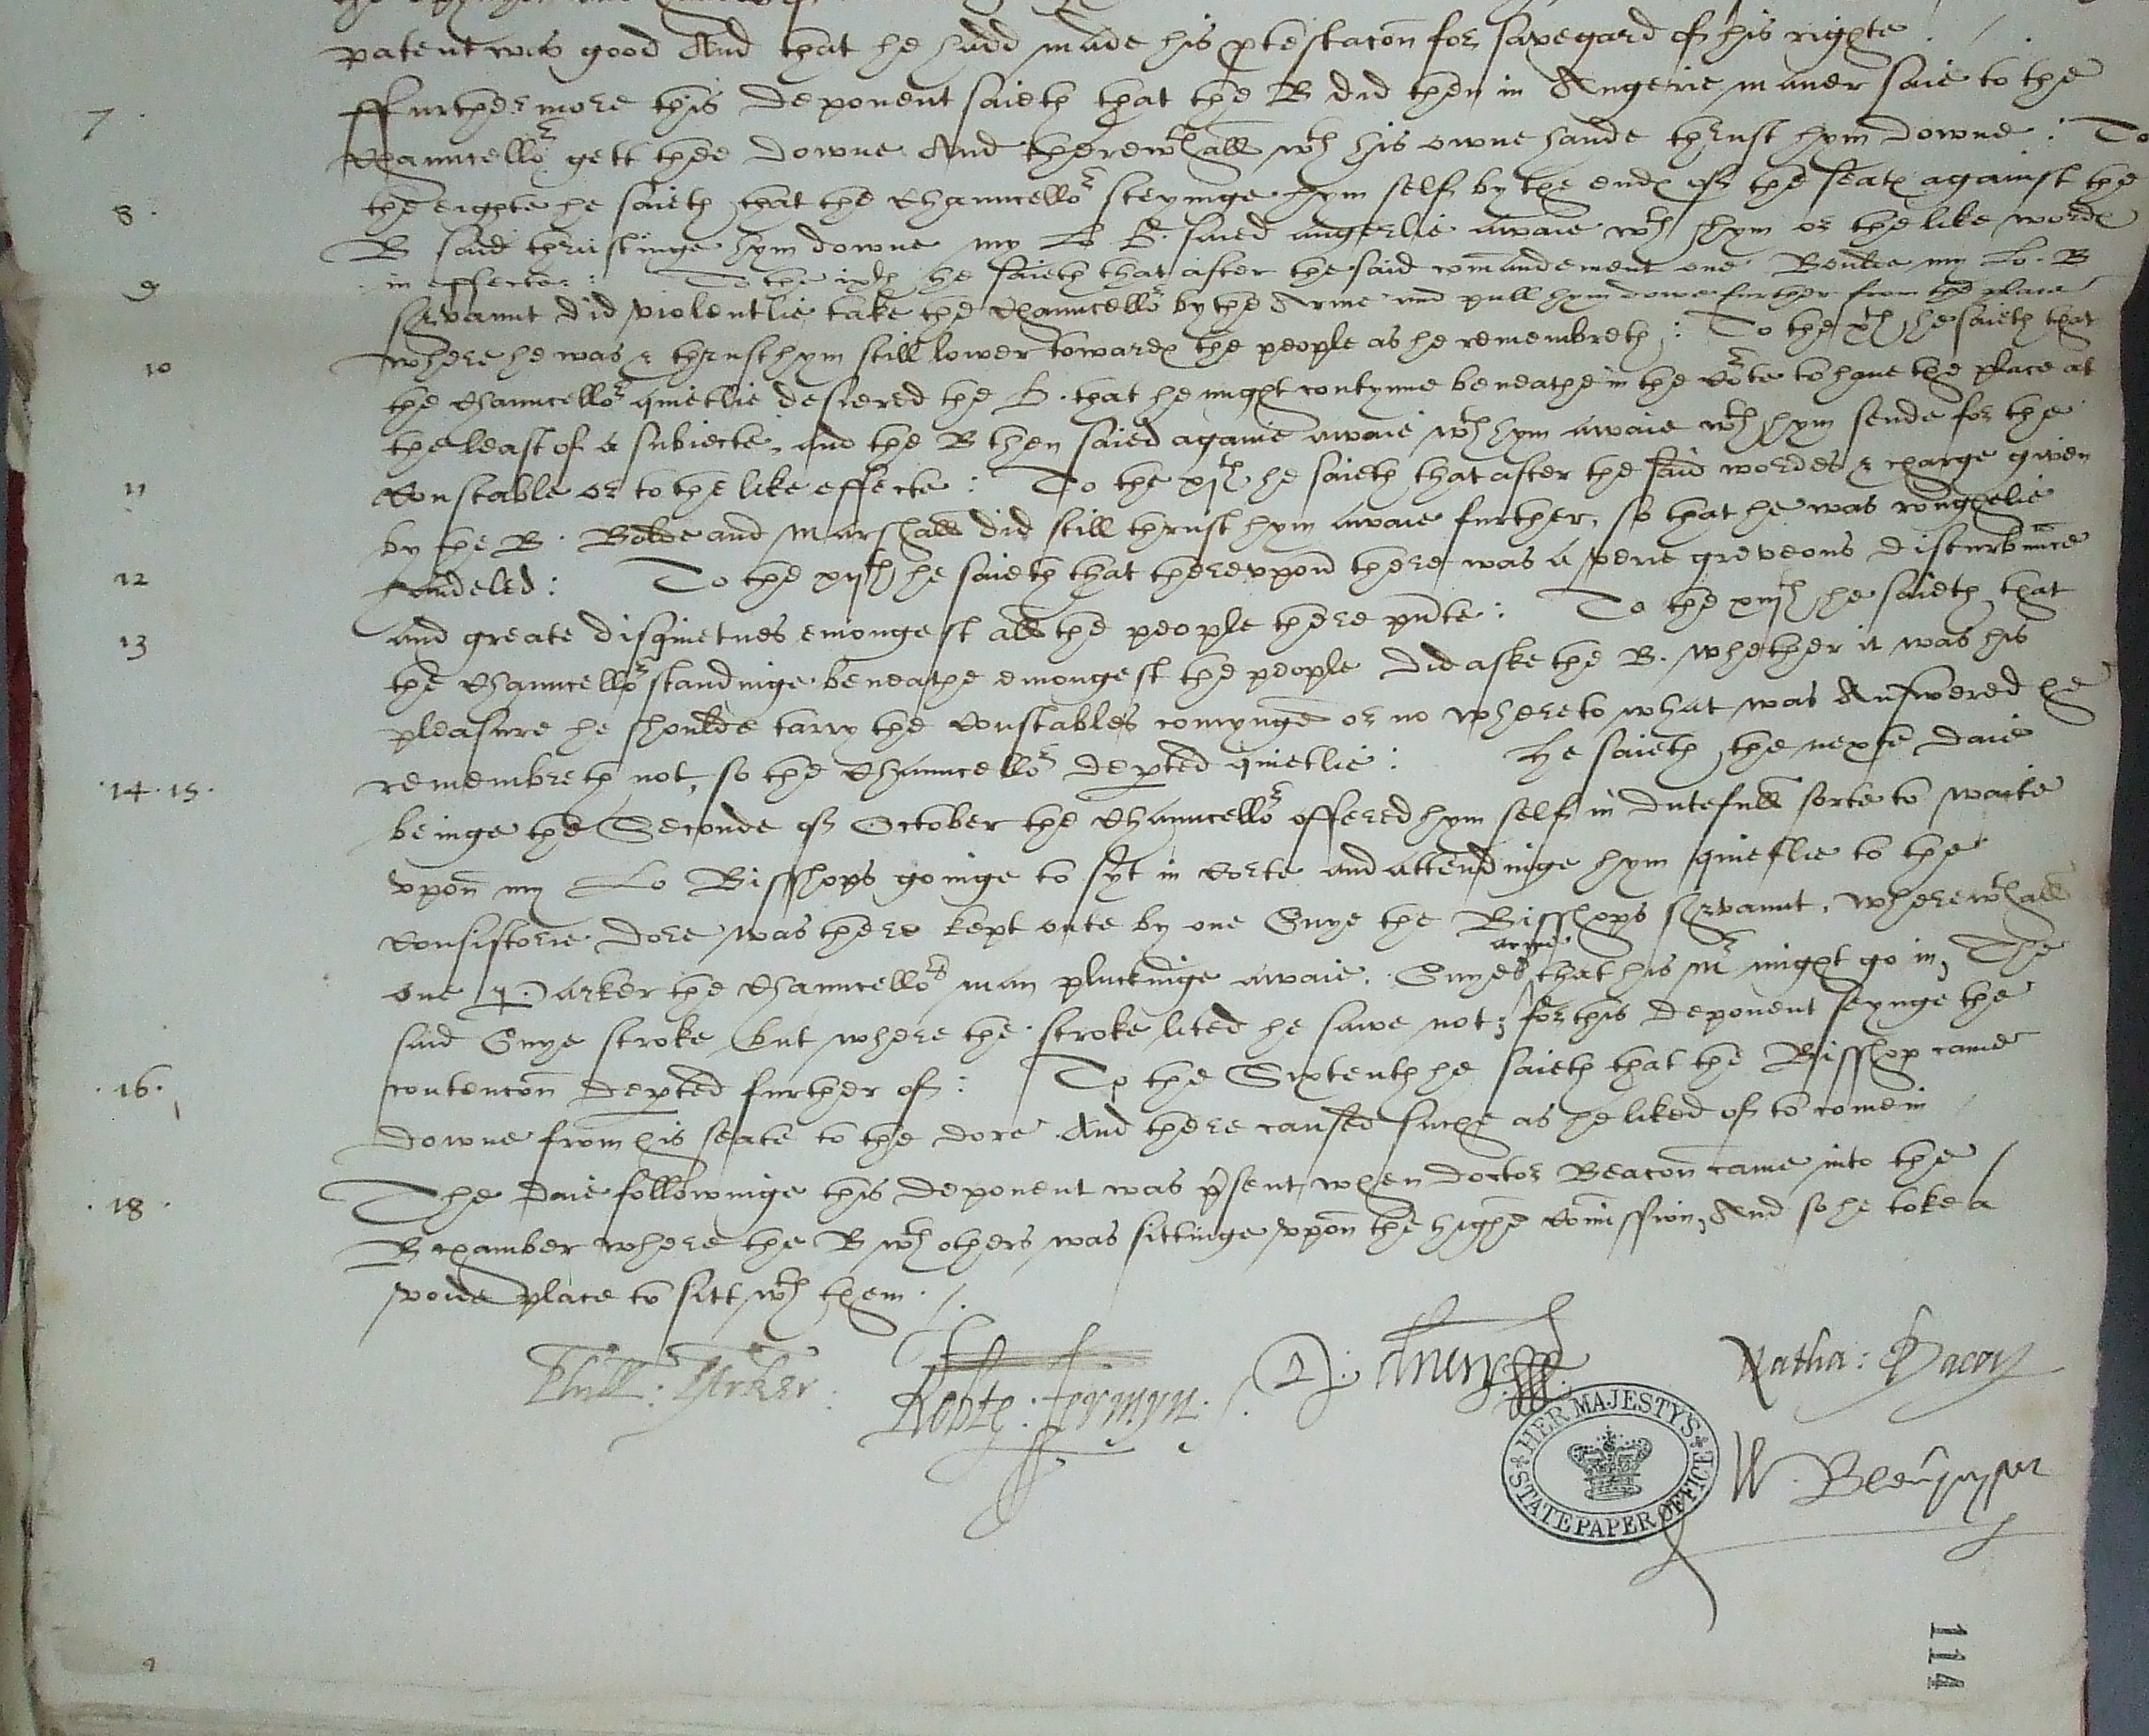 patent was good And that he hadd made his ptestacon for savegard of his righte
7 ffurthermore this deponent saieth that the B did then in Angerie maner saie to the
Chauncellor gett thee downe And therewthall wth his owne hande thrust hym downe : To
8 the eighte he saieth that the Chauncellor steyinge hym self by the ende of the seate against the
B said thrustinge hym downe my Lo B. saied angerlie awaie wth hym or the like worde
9 in effecte : To the ixth he saieth that after the said comandement one my Lo. B
servaunt did violentlie take the Chauncellor by the Arme and pull hym downe further from the place
10 where he was & thrust hym still lower towarde the people as he remembreth : To the xth he saieth that
the Chauncellor quietlie desiered the B. that he might contynue beneathe in the Corte to have the place at
the least of a subiecte, and the B then saied againe awaie wth hym awaie wth hym sende for the
11 Constable or to the like effecte : To the xjth he saieth that after the said wordes & charge given
by the B. and Marshall did still thrust hym awaie further, so that he was roughelie
12 handeled : To the xijth he saieth that therevpon there was a verie greveous disturbaunce
13 and greate disquietnes emongest all the people there pnte : To the xiijth he saieth that
the Chauncellor standinge beneathe emongest the people did aske the B. whether it was his
pleasure he shoulde tarry the Constables comynge or no whereto what was Answered he
14 . 15 . remembreth not, so the Chauncellor depted quietlie : He saieth the nexte daie
beinge the Seconde of October the Chauncellor offered hym self in dutefull sorte to waite
vpon my Lo Bisshops goinge to syt in Corte and attendinge hym quietlie to the
Consistorie dore was there kept oute by one Guye the Bisshops servaunt, wherewthall
arme
one Parker the Chauncellors man pluckinge awaie Guyes that his Mr might go in, The
said Guye stroke but where the stroke lited he sawe not ; for this deponent seynge the
. 16 . contencon depted further of : To the Sixtenth he saieth that the Bisshop came
downe from his seate to the dore And there caused suche as he liked of to come in
. 18 . The daie followinge this deponent was psent when doctor Beacon came into the
B chamber where the B wth others was sittinge vpon the highe Comission, And so he toke a
voide place to sitt wth them .
Phill : Parker :
Robte : Jermyn .
Natha : Bacon
HER MAJESTY'S STATE PAPER OFFICE
114